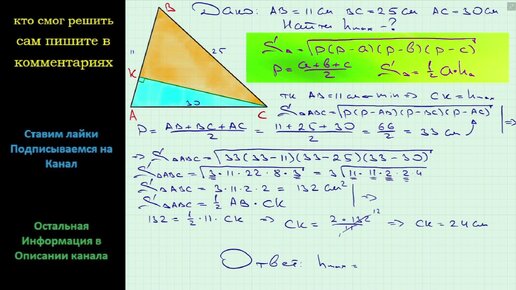 кто смог решить
сам пишите в
комментариях
Ставим лайки
Подписываемся на
Канал
Остальная
Информация в
Описании канала
B
11
25
K
A
30
C
Дано: AB = 11 см BC = 25 см AC = 30 см
Найти hmax - ?
S△ = √p(p-a)(p-b)(p-c)
p = (a+b+c)/2 S△ = 1/2 a·ha
тк AB = 11 см - min ⇒ CK = hmax
S△ABC = √p(p-AB)(p-BC)(p-AC)
p = (AB+BC+AC)/2 = (11+25+30)/2 = 66/2 = 33 см
⇒ S△ABC = √33(33-11)(33-25)(33-30)
S△ABC = √3·11·22·8·3 = 3√11·11·2·2·4
S△ABC = 3·11·2·2 = 132 см²
S△ABC = 1/2 AB·CK
132 = 1/2·11·CK ⇒ CK = 2·132/11 12 ⇒ CK = 24 см
Ответ: hmax =